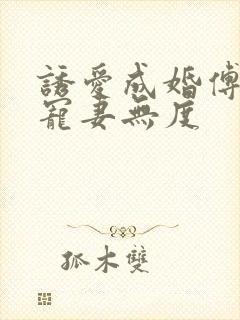 誘愛成婚傅
寵妻無度
孤木雙